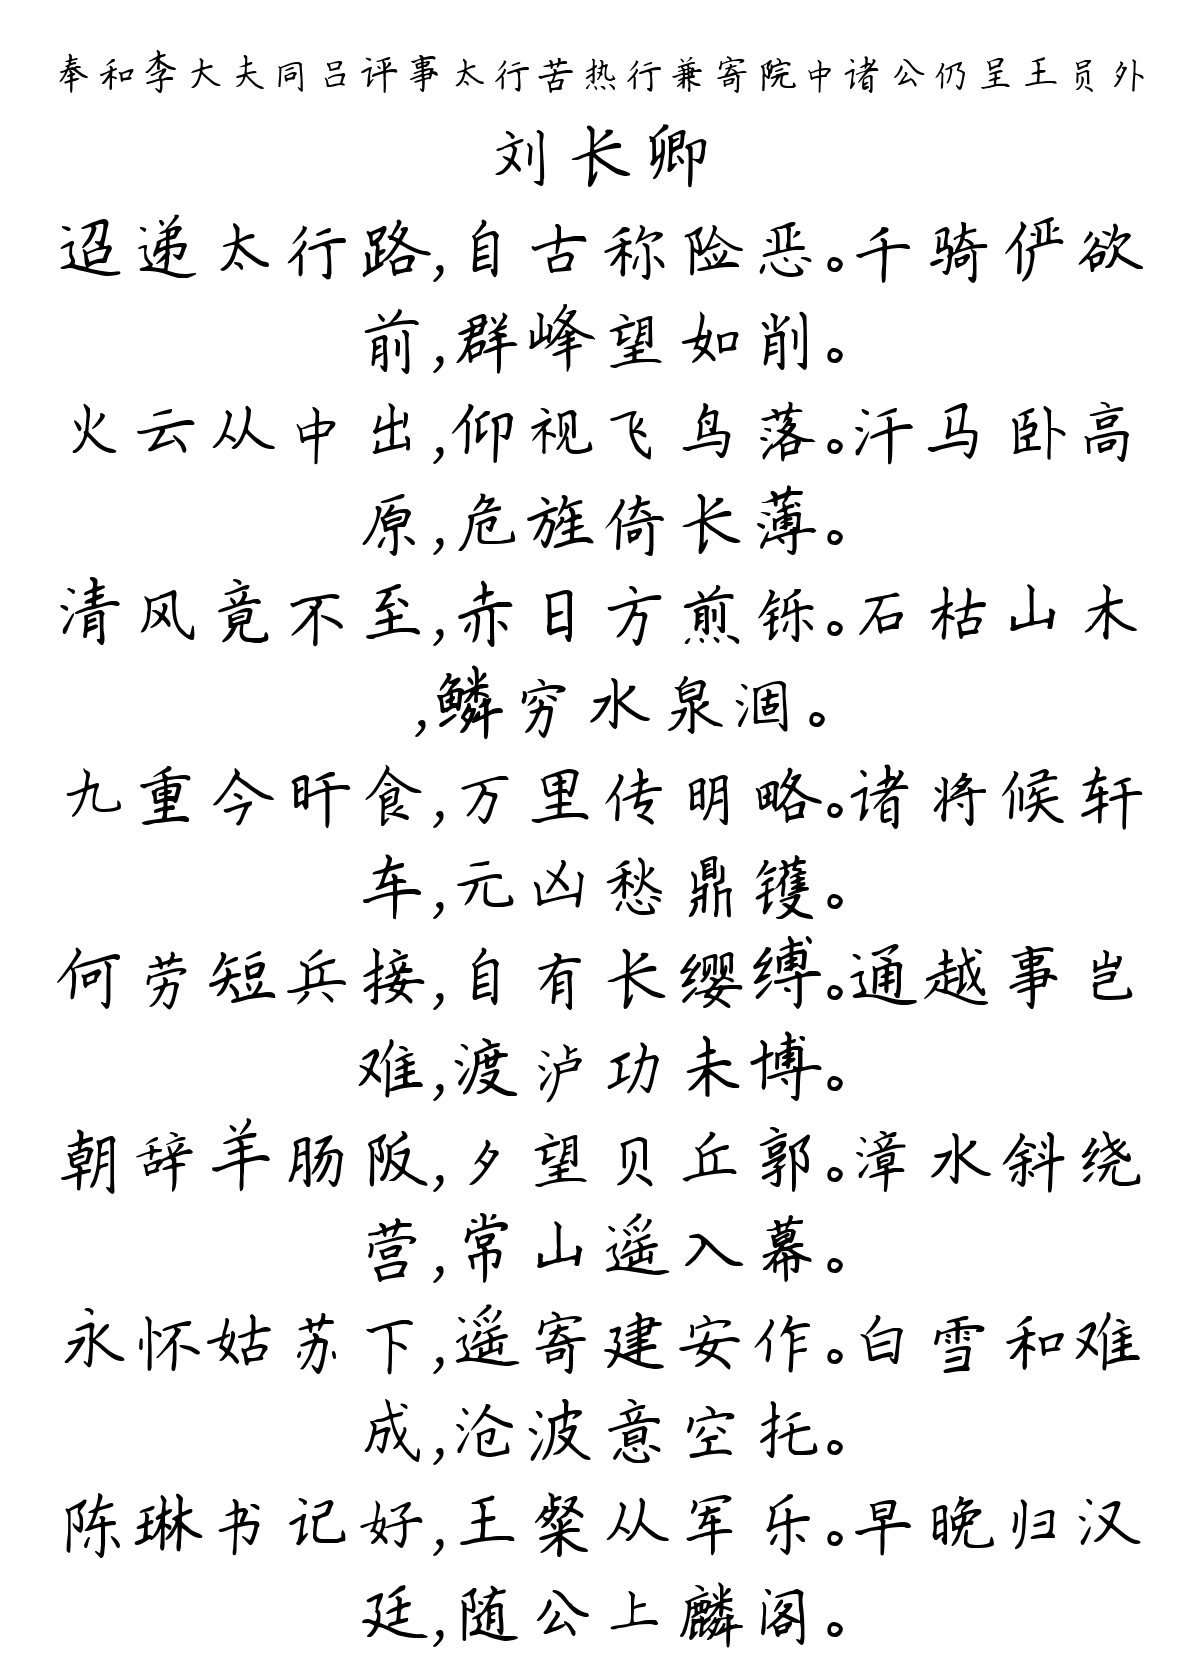 奉和李大夫同吕评事太行苦热行兼寄院中诸公仍呈王员外
刘长卿
迢递太行路,自古称险恶。千骑俨欲
前,群峰望如削。
火云从中出,仰视飞鸟落。汗马卧高
原,危旌倚长薄。
清风竟不至,赤日方煎铄。石枯山木
,鳞穷水泉涸。
九重今旰食,万里传明略。诸将候轩
车,元凶愁鼎镬。
何劳短兵接,自有长缨缚。通越事岂
难,渡泸功未博。
朝辞羊肠阪,夕望贝丘郭。漳水斜绕
营,常山遥入幕。
永怀姑苏下,遥寄建安作。白雪和难
成,沧波意空托。
陈琳书记好,王粲从军乐。早晚归汉
廷,随公上麟阁。